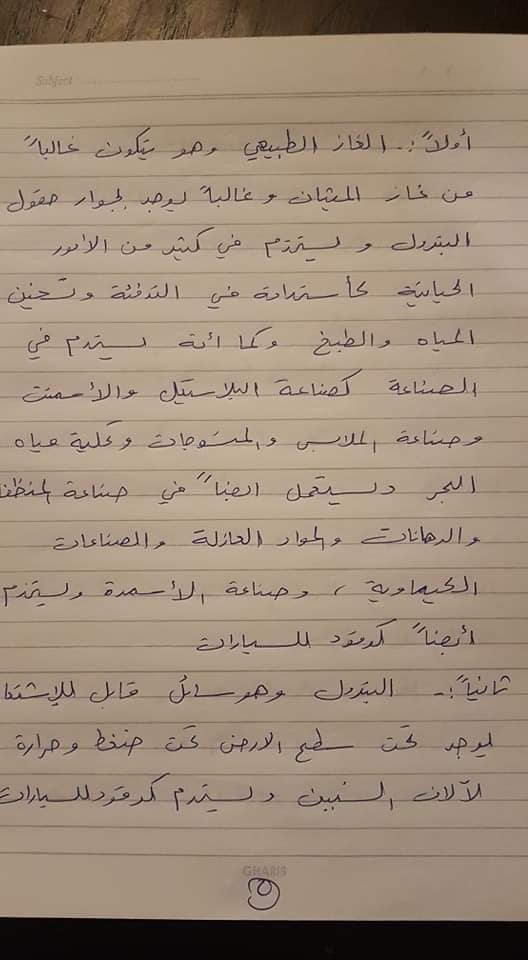 Subject
أولاً :. الغاز الطبيعي وهو يتكون غالباً
من غاز الميثان وغالباً يوجد بجوار حقول
البترول ويستخدم في كثير من الأمور
الحياتية كأستخدامه في التدفئة وتسخين
المياه والطبخ وكما أنه يستخدم في
الصناعة كصناعة البلاستيك والأسمنت
وصناعة الملابس والمنسوجات وتحلية مياه
البحر ويستعمل ايضاً في صناعة المنظفا
والدهانات والمواد العازلة والصناعات
الكيماوية ، وصناعة الأسمدة ويستخدم
أيضاً كوقود للسيارات
ثانياً :. البترول وهو سائل قابل للإشتعا
يوجد تحت سطح الارض تحت ضغط وحرارة
لآلاف السنين ويستخدم كوقود للسيارات
GHARIB